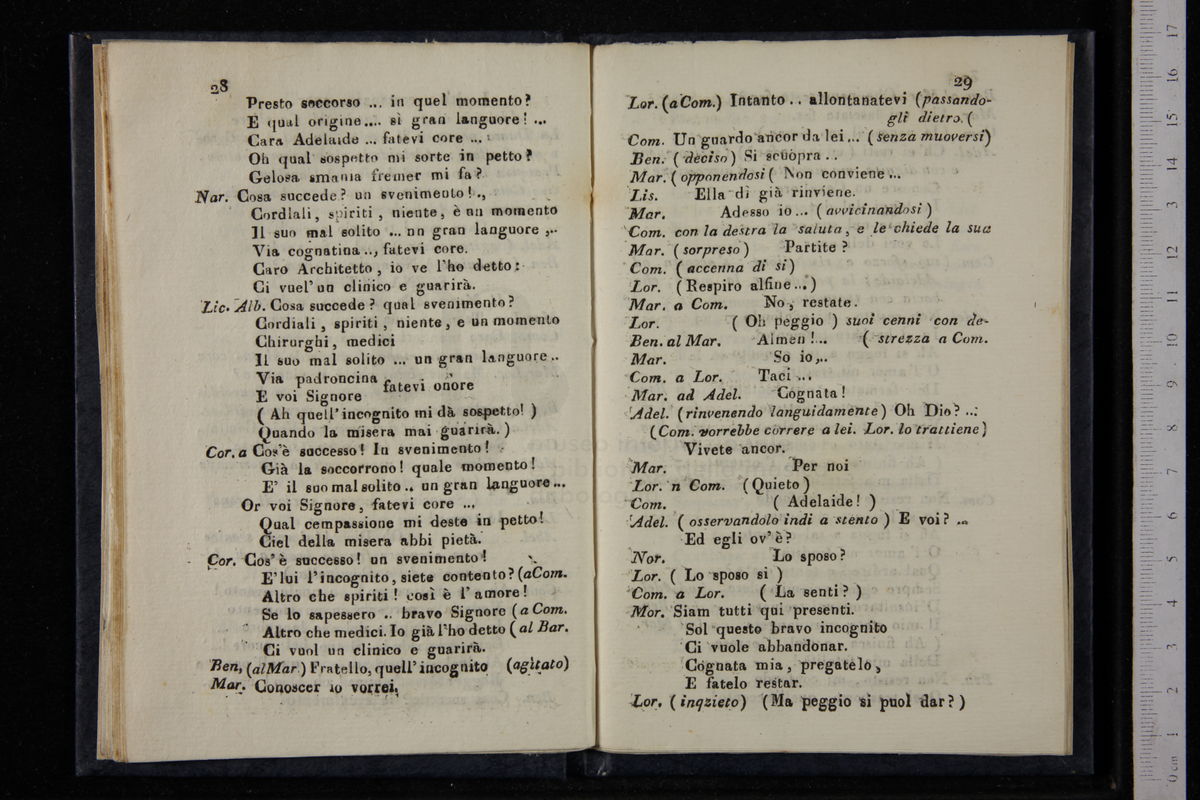 28
Presto soccorso ... in quel momento?
E qual origine.... sì gran languore! ...
Cara Adelaide ... fatevi core ... !
Oh qual sospetto mi sorte in petto?
Gelosa smania fremer mi fa?
Nar. Cosa succede? un svenimento!..
Cordiali, spiriti, niente, è un momento
Il suo mal solito ... un gran languore ...
Via cognatina .., fatevi core.
Caro Architetto, io ve l'ho detto:
Ci vuel' un clinico e guarirà.
Lic. Alb. Cosa succede? qual svenimento?
Cordiali, spiriti, niente, e un momento
Chirurghi, medici
Il suo mal solito ... un gran languore..
Via padroncina
fatevi onore
E voi Signore
( Ah quell' incognito mi dà sospetto! )
Quando la misera mai guarirà. )
Cor. a Cos'è successo! In svenimento!
Già la soccorrono! quale momento!
E' il suo mal solito .. un gran languore...
Or voi Signore, fatevi core ...
Qual cempassione mi deste in petto!
Ciel della misera abbi pietà.
Cor. Cos' è successo! un svenimento!
E' lui l'incognito, siete contento? (a Com.
Altro che spiriti! così è l' amore!
Se lo sapessero .. bravo Signore (a Com.
Altro che medici. Io già l'ho detto (al Bar.
Ci vuol un clinico e guarirà.
Ben, (al Mar.) Fratello, quell' incognito (agitato)
Mar. Conoscer io vorrei.
29
Lor. (a Com.) Intanto .. allontanatevi (passando-
gli dietro. (
Com. Un guardo ancor da lei... (senza muoversi)
Ben. (deciso) Si scuopra ..
Mar. (opponendosi ( Non conviene...
Lis. Ella dì già rinviene.
Mar. Adesso io... (avvicinandosi)
Com. con la destra la saluta, e le chiede la sua
Mar. (sorpreso) Partite?
Com. (accenna di si)
Lor. (Respiro alfine...)
Mar. a Com. No, restate.
Lor. ( Oh peggio ) suoi cenni con de-
Ben. al Mar. Almen!.. ( strezza a Com.
Mar. So io,..
Com. a Lor. Taci ...
Mar. ad Adel. Cognata!
Adel. (rinvenendo languidamente) Oh Dio? ...
(Com. vorrebbe correre a lei. Lor. lo trattiene)
Vivete ancor.
Mar. Per noi
Lor. n Com. (Quieto)
Com. ( Adelaide! )
Adel. ( osservandolo indi a stento ) E voi? ...
Ed egli ov' è?
Nor. Lo sposo?
Lor. ( Lo sposo si )
Com. a Lor. ( La senti? )
Mor. Siam tutti qui presenti.
Sol questo bravo incognito
Ci vuole abbandonar.
Cognata mia, pregatelo,
E fatelo restar.
Lor. (inqzieto) (Ma peggio si puol dar?)
0 cm 1 2 3 4 5 6 7 8 9 10 11 12 13 14 15 16 17